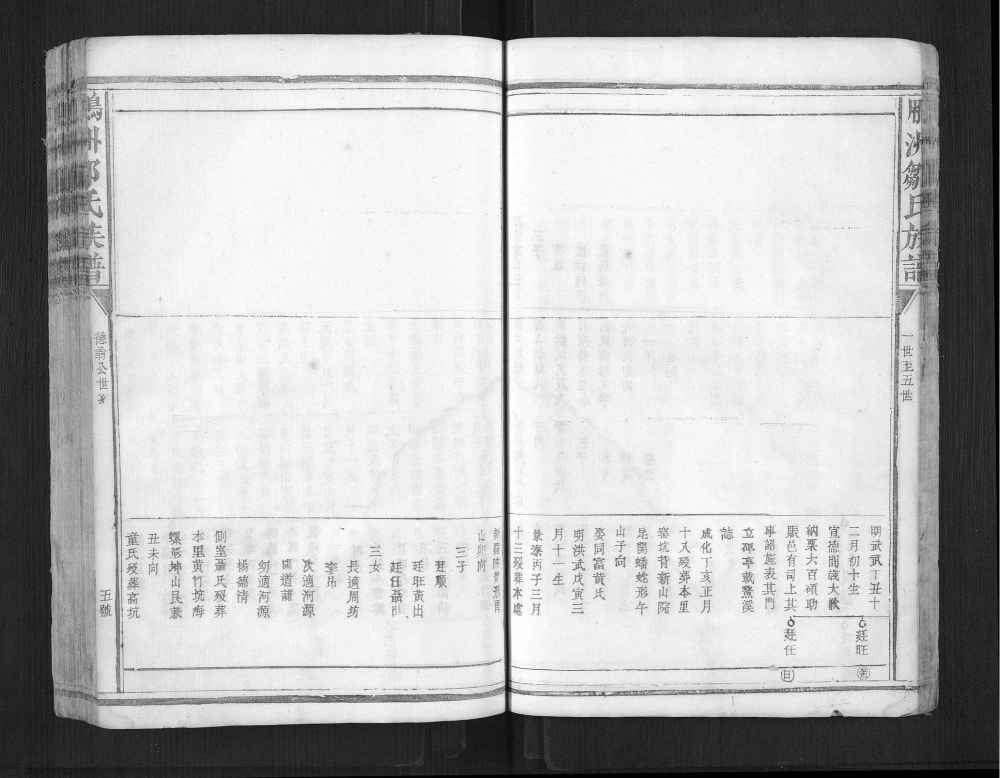 雁洲鄒氏族譜
一世至五世
明武武丁丑十
二月初十生
宣德間歲大歉
納粟六百碩助
賑邑有司上其
事詔旌表其門
立碑亭載鰲溪
誌
成化丁亥正月
十又歿葬本里
築坑背新山院
晃開蟠蛇形午
山子向
娶同富黃氏
明洪武戊寅三
月十一生
景泰丙子三月
十三歿葬本處
廷旺
廷任
山卯向
三子
廷順
廷旺黃出
廷任聶出
三女
長適周坊
李出
次適河源
周道謙
幼適河源
楊德清
側室聶氏歿葬
本里黃竹坑海
螺形坤山艮兼
丑未向
童氏歿葬高坑
鴻洲鄒氏族譜
公世系
五號